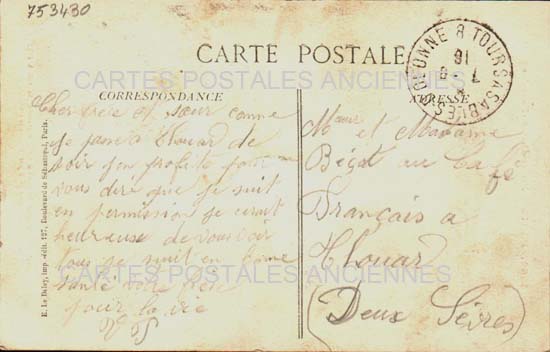 753430
CARTE POSTALE
CARTES POSTALES ANCIENNES
CORRESPONDANCE
ADRESSE
D'OLONNE À TOURS
SABLES
Cher frère et sœur comme
je passe a Thouar de
soir j'en profite pour
vous dire que je suit
en permission je serait
heureuse de vous voir
tous je suit en bonne
santé votre
pour la vie
Mr et Madame
Bégat au Café
Français a
Thouar
(Deux Sèvres)
CARTES POSTALES ANCIENNES
E. Le Deley, imp.-édit. 127, Boulevard de Sébastopol, Paris.